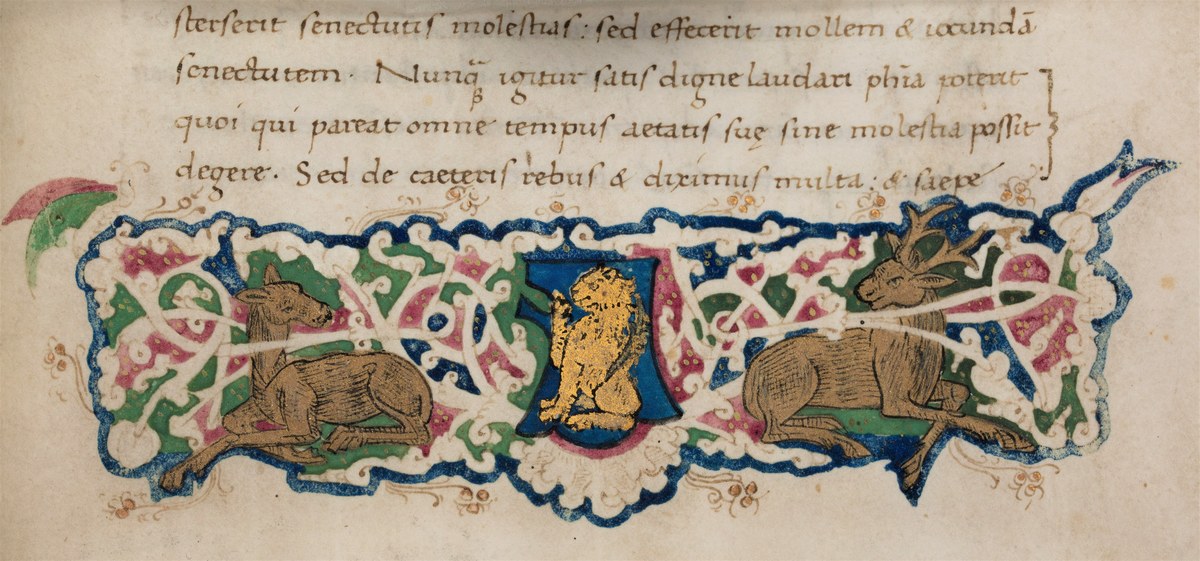 sterserit senectutis molestias: sed effecerit mollem & iocundā
senectutem. Nunq̄ꝫ igitur satis digne laudari phīa poterit
quoi qui pareat omne tempus aetatis suę sine molestia possit
degere. Sed de caeteris rebus & diximus multa: & saepe